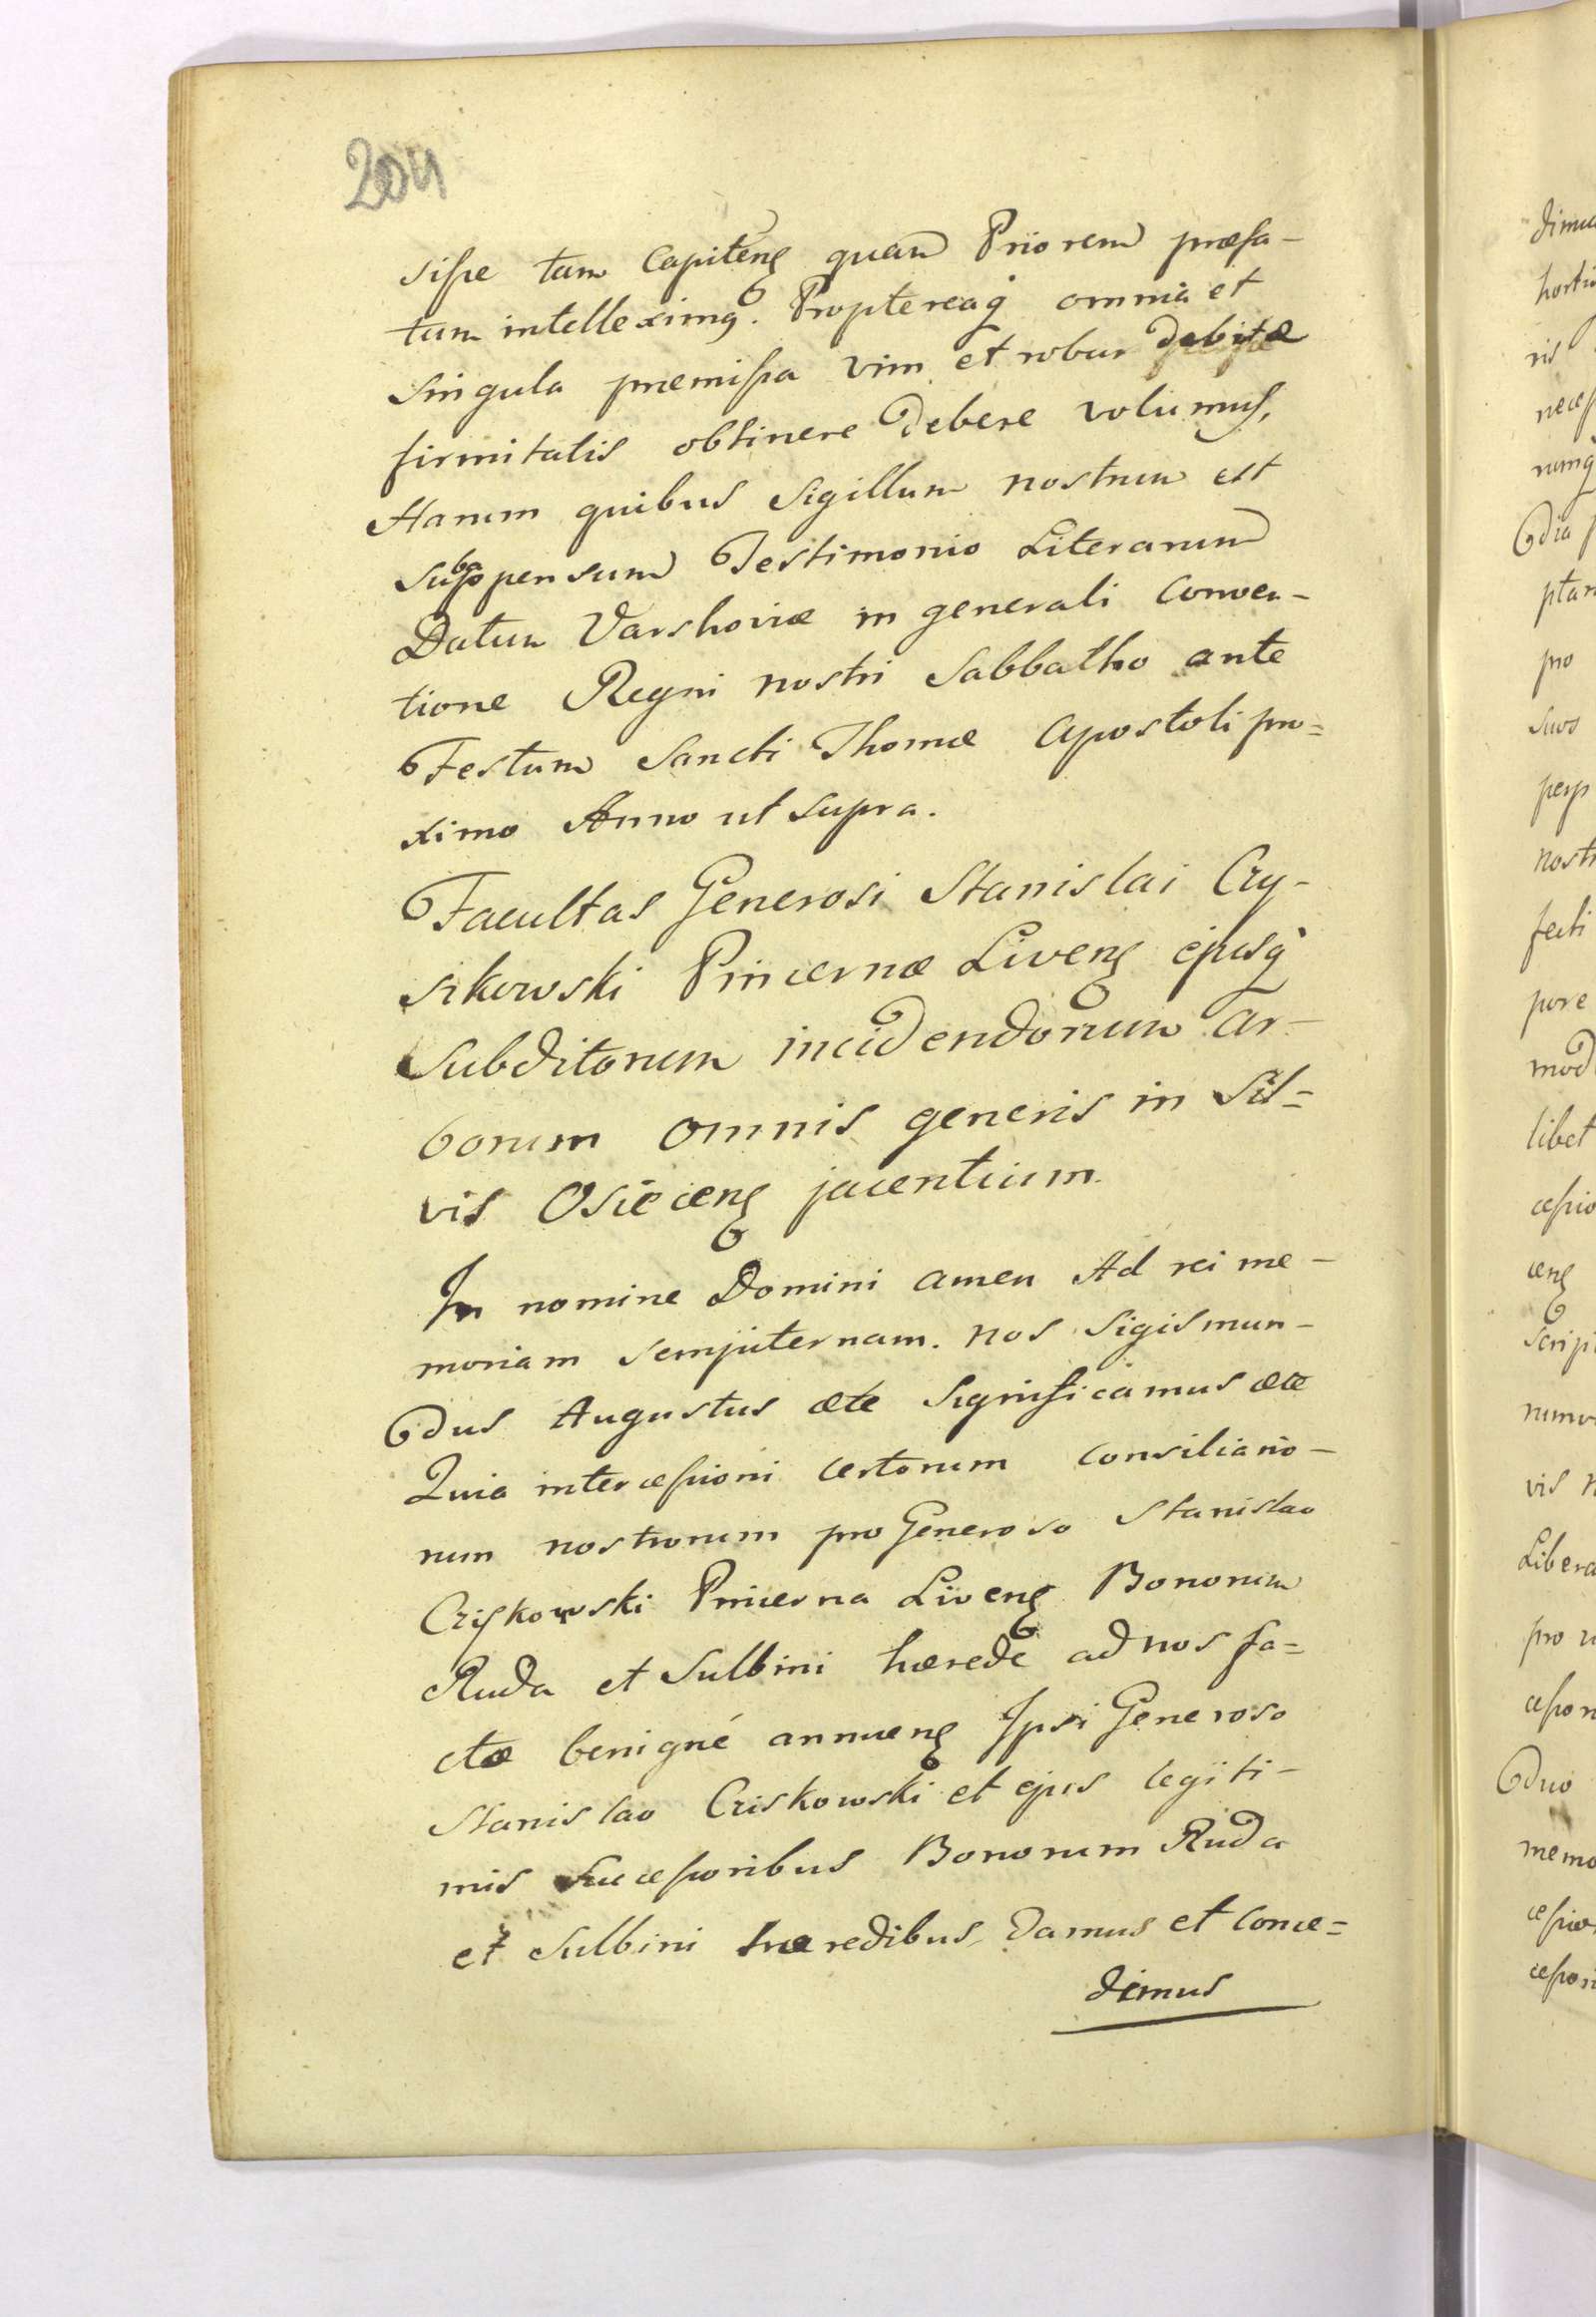 204
sisse tam Capiteng quam Priorem præfa-
tum intelleximg. Propterea q̀ omnia et
Singula præmissa vim et robur debitæ
firmitatis obtinere debere volumus,
Harum quibus Sigillum nostrum est
Subappensum Testimonio Literarum
Datum Varshoviæ in generali Conven-
tione Regni nostri Sabbatho ante
Festum Sancti Thomæ Apostoli pro=
ximo Anno ut supra.
Facultas Generosi Stanislai Cry-
sikowski Pincernæ Liveng ejusq̀
Subditorum incidendorum ar-
borum omnis generis in Sil=
vis Osieceng jacentium.
In nomine Domini amen Ad rei me-
moriam sempiternam. nos Sigismun-
dus Augustus ete Significamus ete
Quia intercessioni certorum consiliario-
rum nostrorum pro Generoso Stanislao
Criskowski Pincerna Liveng Bonorum
Ruda et Sulbini hærede ad nos fa=
ctæ benigné annueng Ipsi Generoso
Stanislao Criskowski et ejus legiti-
mis Successoribus Bonorum Ruda
et Sulbini hæredibus, damus et conce=
dimus